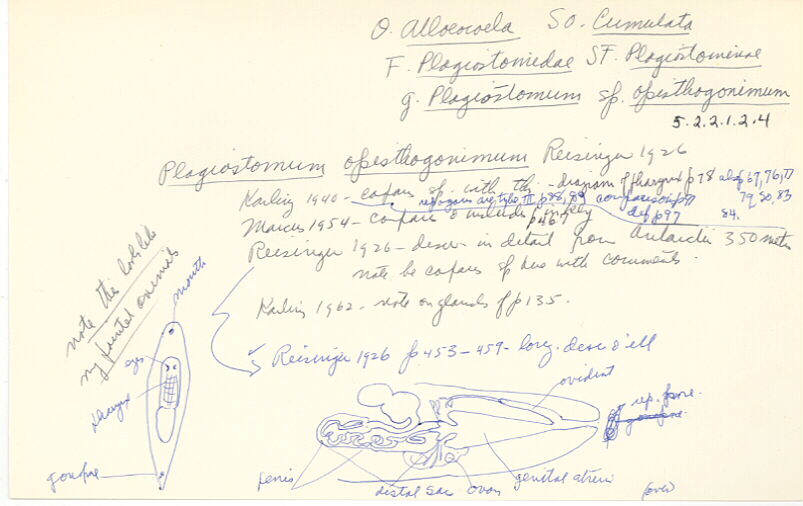 O. Alloeocoela SO. Cumulata
F. Plagiostomidae SF. Plagiostominae
g. Plagiostomum sp. opisthogonimum
5.2.2.1.2.4
Plagiostomum opisthogonimum Reisinger 1926
Karling 1940 - compares sp. with this - diagram of pharynx p78 also p 67, 76, 77
rep. organs are type III p88, 89 comparison p 79, 80, 83
Marcus 1954 - compares & includes in key p 467 def p97 84.
Reisinger 1926 - descr. in detail from Antarctic 350 meters
note he compares sp here with comments.
Karling 1962 - note on glands of p 135.
✓ Reisinger 1926 p. 453-459 - long. descr & ill
note this looks like
my pointed animals
mouth
eyes
pharynx
gonopore
oviduct
rep. pore.
gonopore.
penis
distal sac
ovary
genital atrium
(over)